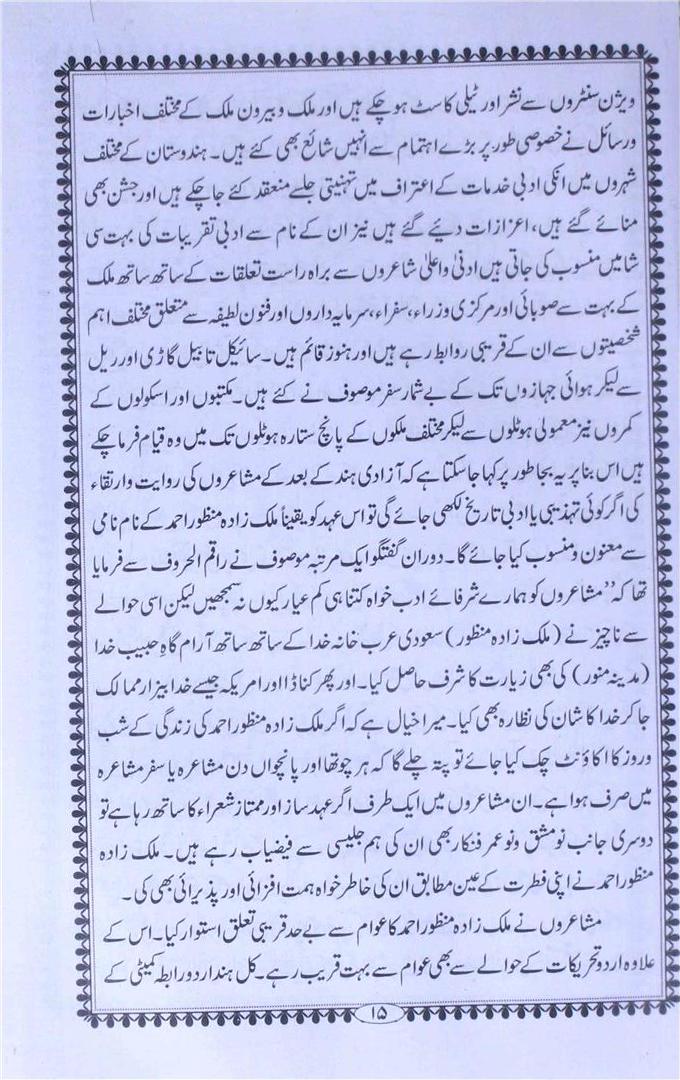 ویژن سنٹروں سے نشر اور ٹیلی کاسٹ ہو چکے ہیں اور ملک و بیرون ملک کے مختلف اخبارات
ورسائل نے خصوصی طور پر بڑے اہتمام سے انہیں شائع بھی کئے ہیں۔ ہندوستان کے مختلف
شہروں میں انکی ادبی خدمات کے اعتراف میں تہنیتی جلسے منعقد کئے جا چکے ہیں اور جشن بھی
منائے گئے ہیں، اعزازات دیئے گئے ہیں نیز ان کے نام سے ادبی تقریبات کی بہت سی
شامیں منسوب کی جاتی ہیں ادنیٰ واعلیٰ شاعروں سے براہ راست تعلقات کے ساتھ ساتھ ملک
کے بہت سے صوبائی اور مرکزی وزراء، سفراء، سرمایہ داروں اور فنون لطیفہ سے متعلق مختلف اہم
شخصیتوں سے ان کے قریبی روابط رہے ہیں اور ہنوز قائم ہیں۔ سائیکل تا بیل گاڑی اور ریل
سے لیکر ہوائی جہازوں تک کے بے شمار سفر موصوف نے کئے ہیں۔ مکتبوں اور اسکولوں کے
کمروں نیز معمولی ہوٹلوں سے لیکر مختلف ملکوں کے پانچ ستارہ ہوٹلوں تک میں وہ قیام فرما چکے
ہیں اس بنا پر یہ بجا طور پر کہا جا سکتا ہے کہ آزادی ہند کے بعد کے مشاعروں کی روایت وارتقاء
کی اگر کوئی تہذیبی یا ادبی تاریخ لکھی جائے گی تو اس عہد کو یقیناً ملک زادہ منظور احمد کے نام نامی
سے معنون و منسوب کیا جائے گا۔ دوران گفتگو ایک مرتبہ موصوف نے راقم الحروف سے فرمایا
تھا کہ ’’مشاعروں کو ہمارے شرفائے ادب خواہ کتنا ہی کم عیار کیوں نہ سمجھیں لیکن اسی حوالے
سے ناچیز نے (ملک زادہ منظور) سعودی عرب خانہ خدا کے ساتھ ساتھ آرام گاہِ حبیب خدا
(مدینہ منور) کی بھی زیارت کا شرف حاصل کیا۔ اور پھر کناڈا اور امریکہ جیسے خدا بیزار ممالک
جا کر خدا کا شان کی نظارہ بھی کیا۔ میرا خیال ہے کہ اگر ملک زادہ منظور احمد کی زندگی کے شب
وروز کا اکاؤنٹ چک کیا جائے تو پتہ چلے گا کہ ہر چوتھا اور پانچواں دن مشاعرہ یا سفر مشاعرہ
میں صرف ہوا ہے۔ ان مشاعروں میں ایک طرف اگر عہد ساز اور ممتاز شعراء کا ساتھ رہا ہے تو
دوسری جانب نو مشق و نو عمر فنکار بھی ان کی ہم جلیسی سے فیضیاب رہے ہیں۔ ملک زادہ
منظور احمد نے اپنی فطرت کے عین مطابق ان کی خاطر خواہ ہمت افزائی اور پذیرائی بھی کی۔
مشاعروں نے ملک زادہ منظور احمد کا عوام سے بے حد قریبی تعلق استوار کیا۔ اس کے
علاوہ اردو تحریکات کے حوالے سے بھی عوام سے بہت قریب رہے۔ کل ہند اردو رابطہ کمیٹی کے
۱۵